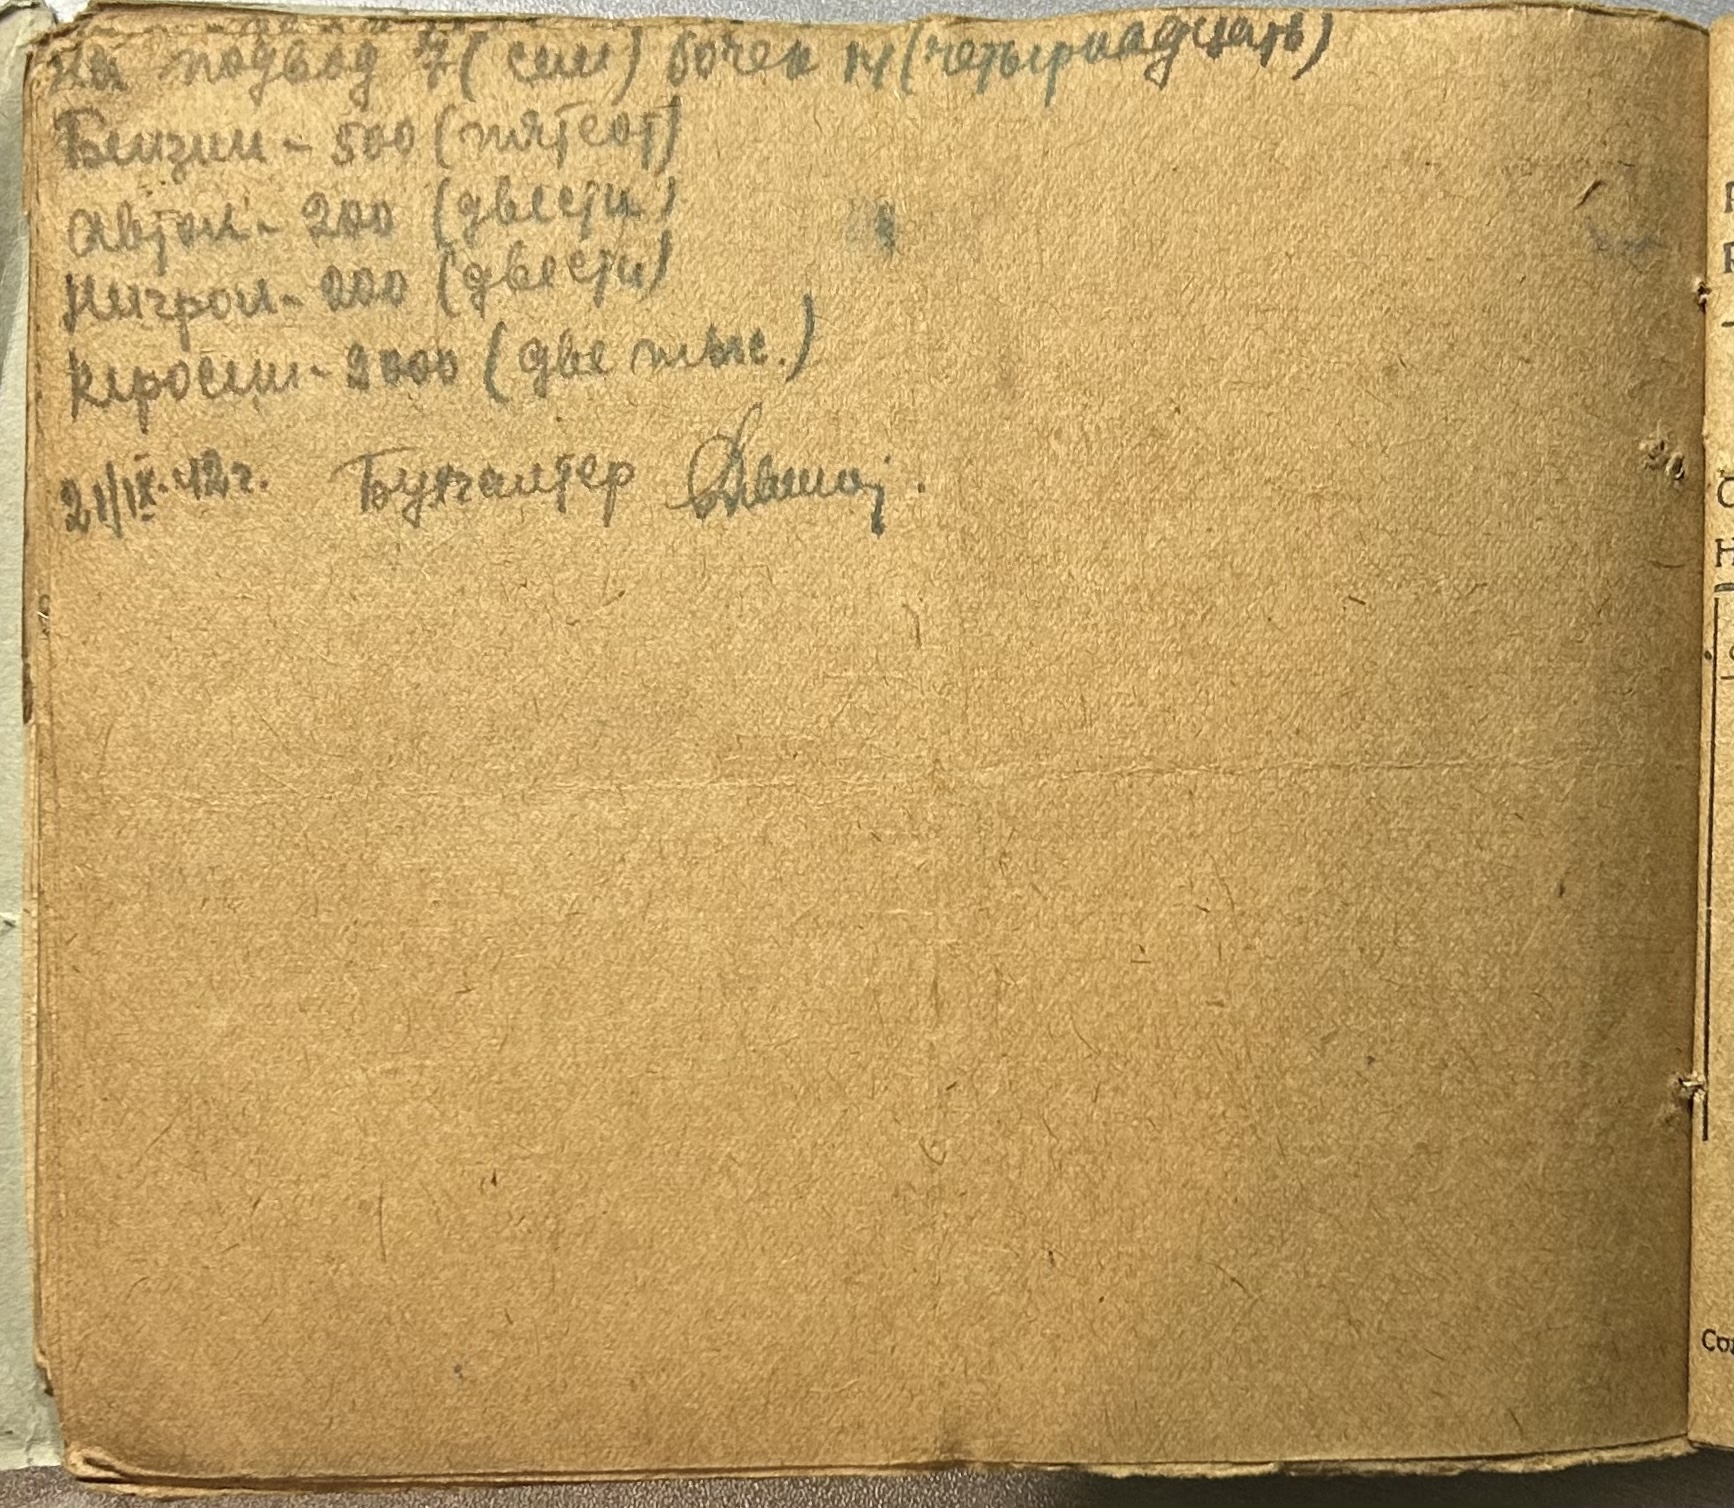 На подвод 7 (сим) бочек 14 (четырнадцать)
Бензин - 500 (пятсот)
Автол - 200 (двести)
Нигрол - 200 (двести)
Керосин - 2000 (две тыс.)
21/IX-42г. Бухгалтер